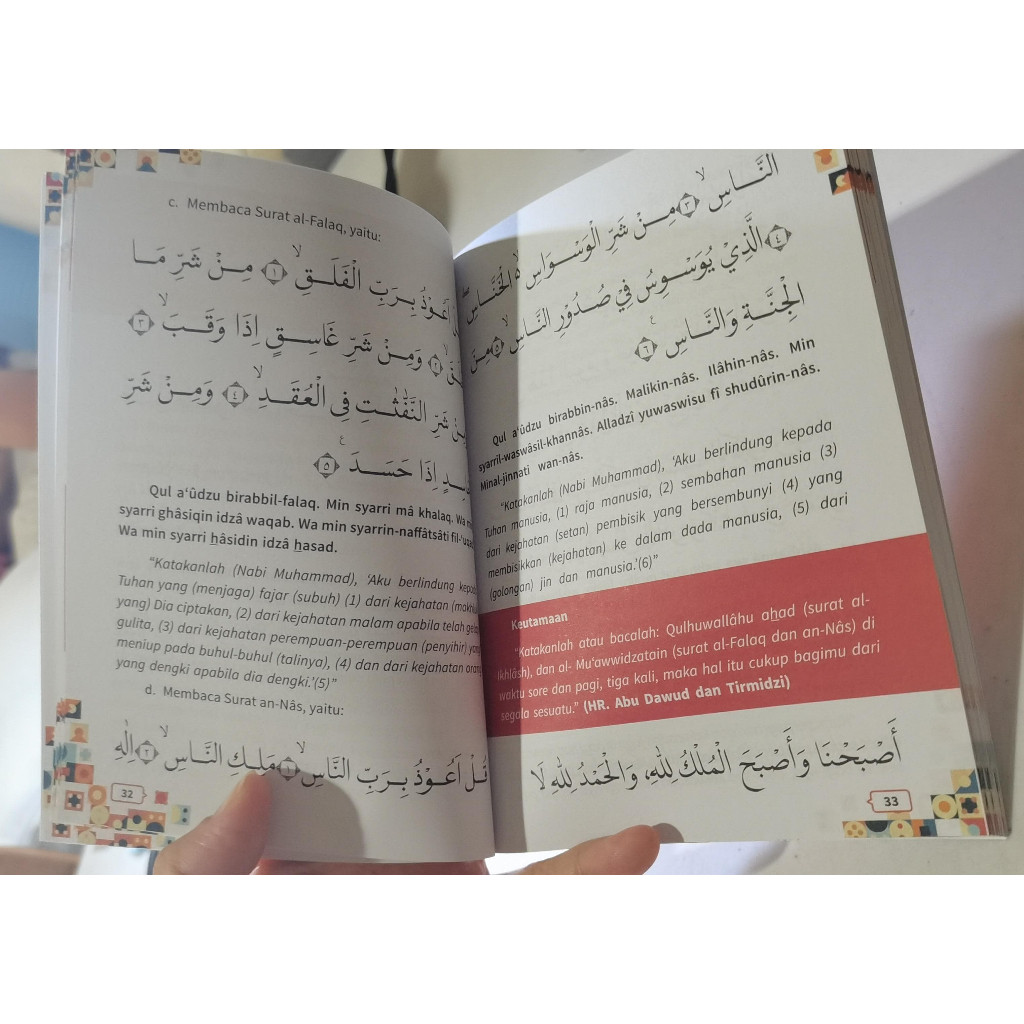 c. Membaca Surat al-Falaq, yaitu:
اَعُوْذُ بِرَبِّ الْفَلَقِۙ ﴿١﴾ مِنْ شَرِّ مَا
﴿٢﴾ وَمِنْ شَرِّ غَاسِقٍ اِذَا وَقَبَۙ ﴿٣﴾
شَرِّ النَّفّٰثٰتِ فِى الْعُقَدِۙ ﴿٤﴾ وَمِنْ شَرِّ
اِذَا حَسَدَࣖ ﴿٥﴾
Qul a‘ûdzu birabbil-falaq. Min syarri mâ khalaq. Wa
syarri ghâsiqin idzâ waqab. Wa min syarrin-naffâtsâti
Wa min syarri hâsidin idzâ hasad.
“Katakanlah (Nabi Muhammad), ‘Aku berlindung kepada
Tuhan yang (menjaga) fajar (subuh) (1) dari kejahatan
yang) Dia ciptakan, (2) dari kejahatan malam apabila telah
gulita, (3) dari kejahatan perempuan-perempuan (penyihir)
meniup pada buhul-buhul (talinya), (4) dan dari kejahatan
yang dengki apabila dia dengki.’(5)”
d. Membaca Surat an-Nâs, yaitu:
قُلْ اَعُوْذُ بِرَبِّ النَّاسِۙ ﴿١﴾ مَلِكِ النَّاسِۙ ﴿٢﴾ اِلٰهِ
32
النَّاسِۙ ﴿٣﴾ مِنْ شَرِّ الْوَسْوَاسِ ەۙ الْخَنَّاسِۖ
﴿٤﴾ الَّذِيْ يُوَسْوِسُ فِيْ صُدُوْرِ النَّاسِۙ ﴿٥﴾ مِنَ
الْجِنَّةِ وَالنَّاسِࣖ ﴿٦﴾
Qul a‘ûdzu birabbin-nâs. Malikin-nâs. Ilâhin-nâs. Min
syarril-waswâsil-khannâs. Alladzî yuwaswisu fî shudûrin-nâs.
Minal-jinnati wan-nâs.
“Katakanlah (Nabi Muhammad), ‘Aku berlindung kepada
Tuhan manusia, (1) raja manusia, (2) sembahan manusia (3)
dari kejahatan (setan) pembisik yang bersembunyi (4) yang
membisikkan (kejahatan) ke dalam dada manusia, (5) dari
(golongan) jin dan manusia.’(6)”
Keutamaan
“Katakanlah atau bacalah: Qulhuwallâhu ahad (surat al-
Ikhlâsh), dan al- Mu‘awwidzatain (surat al-Falaq dan an-Nâs) di
waktu sore dan pagi, tiga kali, maka hal itu cukup bagimu dari
segala sesuatu.” (HR. Abu Dawud dan Tirmidzi)
أَصْبَحْنَا وَأَصْبَحَ الْمُلْكُ لِلّٰهِ، وَالْحَمْدُ لِلّٰهِ لَا
33